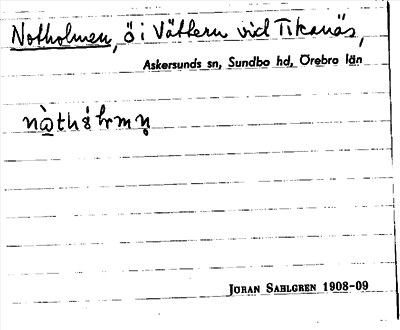 Notholmen, ö i Vättern vid Tikanäs,
Askersunds sn, Sundbo hd, Örebro län
JORAN SAHLGREN 1908-09